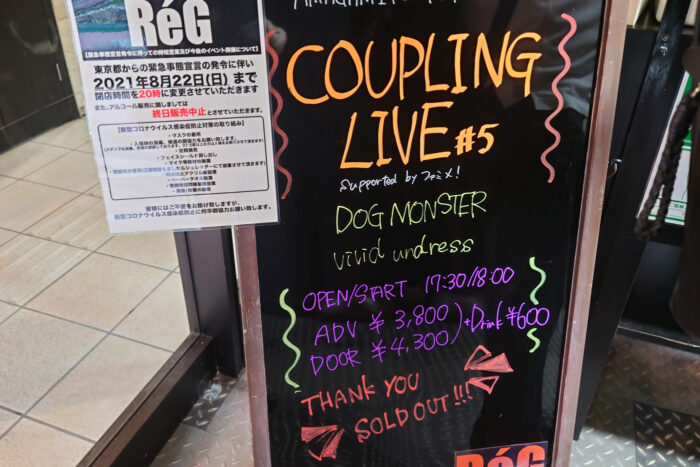 RéG
【緊急事態宣言発令に伴っての時短営業及び今後のイベント開催について】
東京都からの緊急事態宣言の発令に伴い
2021年8月22日(日)まで
閉店時間を20時に変更させていただきます
また、アルコール販売に関しましては
終日販売中止とさせていただきます。
【新型コロナウイルス感染症防止対策の取り組み】
・マスクの着用
・定期換気
・フェイスシールド貸し出し
・マイク等機材の消毒
・ペーパータオル設置
皆様にはご不便をお掛け致しますが、
新型コロナウイルス感染症防止に何卒御協力お願い致します。
COUPLING
LIVE #5
supported by ファミメ!
DOG MONSTER
vivid undress
OPEN/START 17:30/18:00
ADV ¥3,800
DOOR ¥4,300
+Drink ¥600
THANK YOU
SOLD OUT!!!
RéG